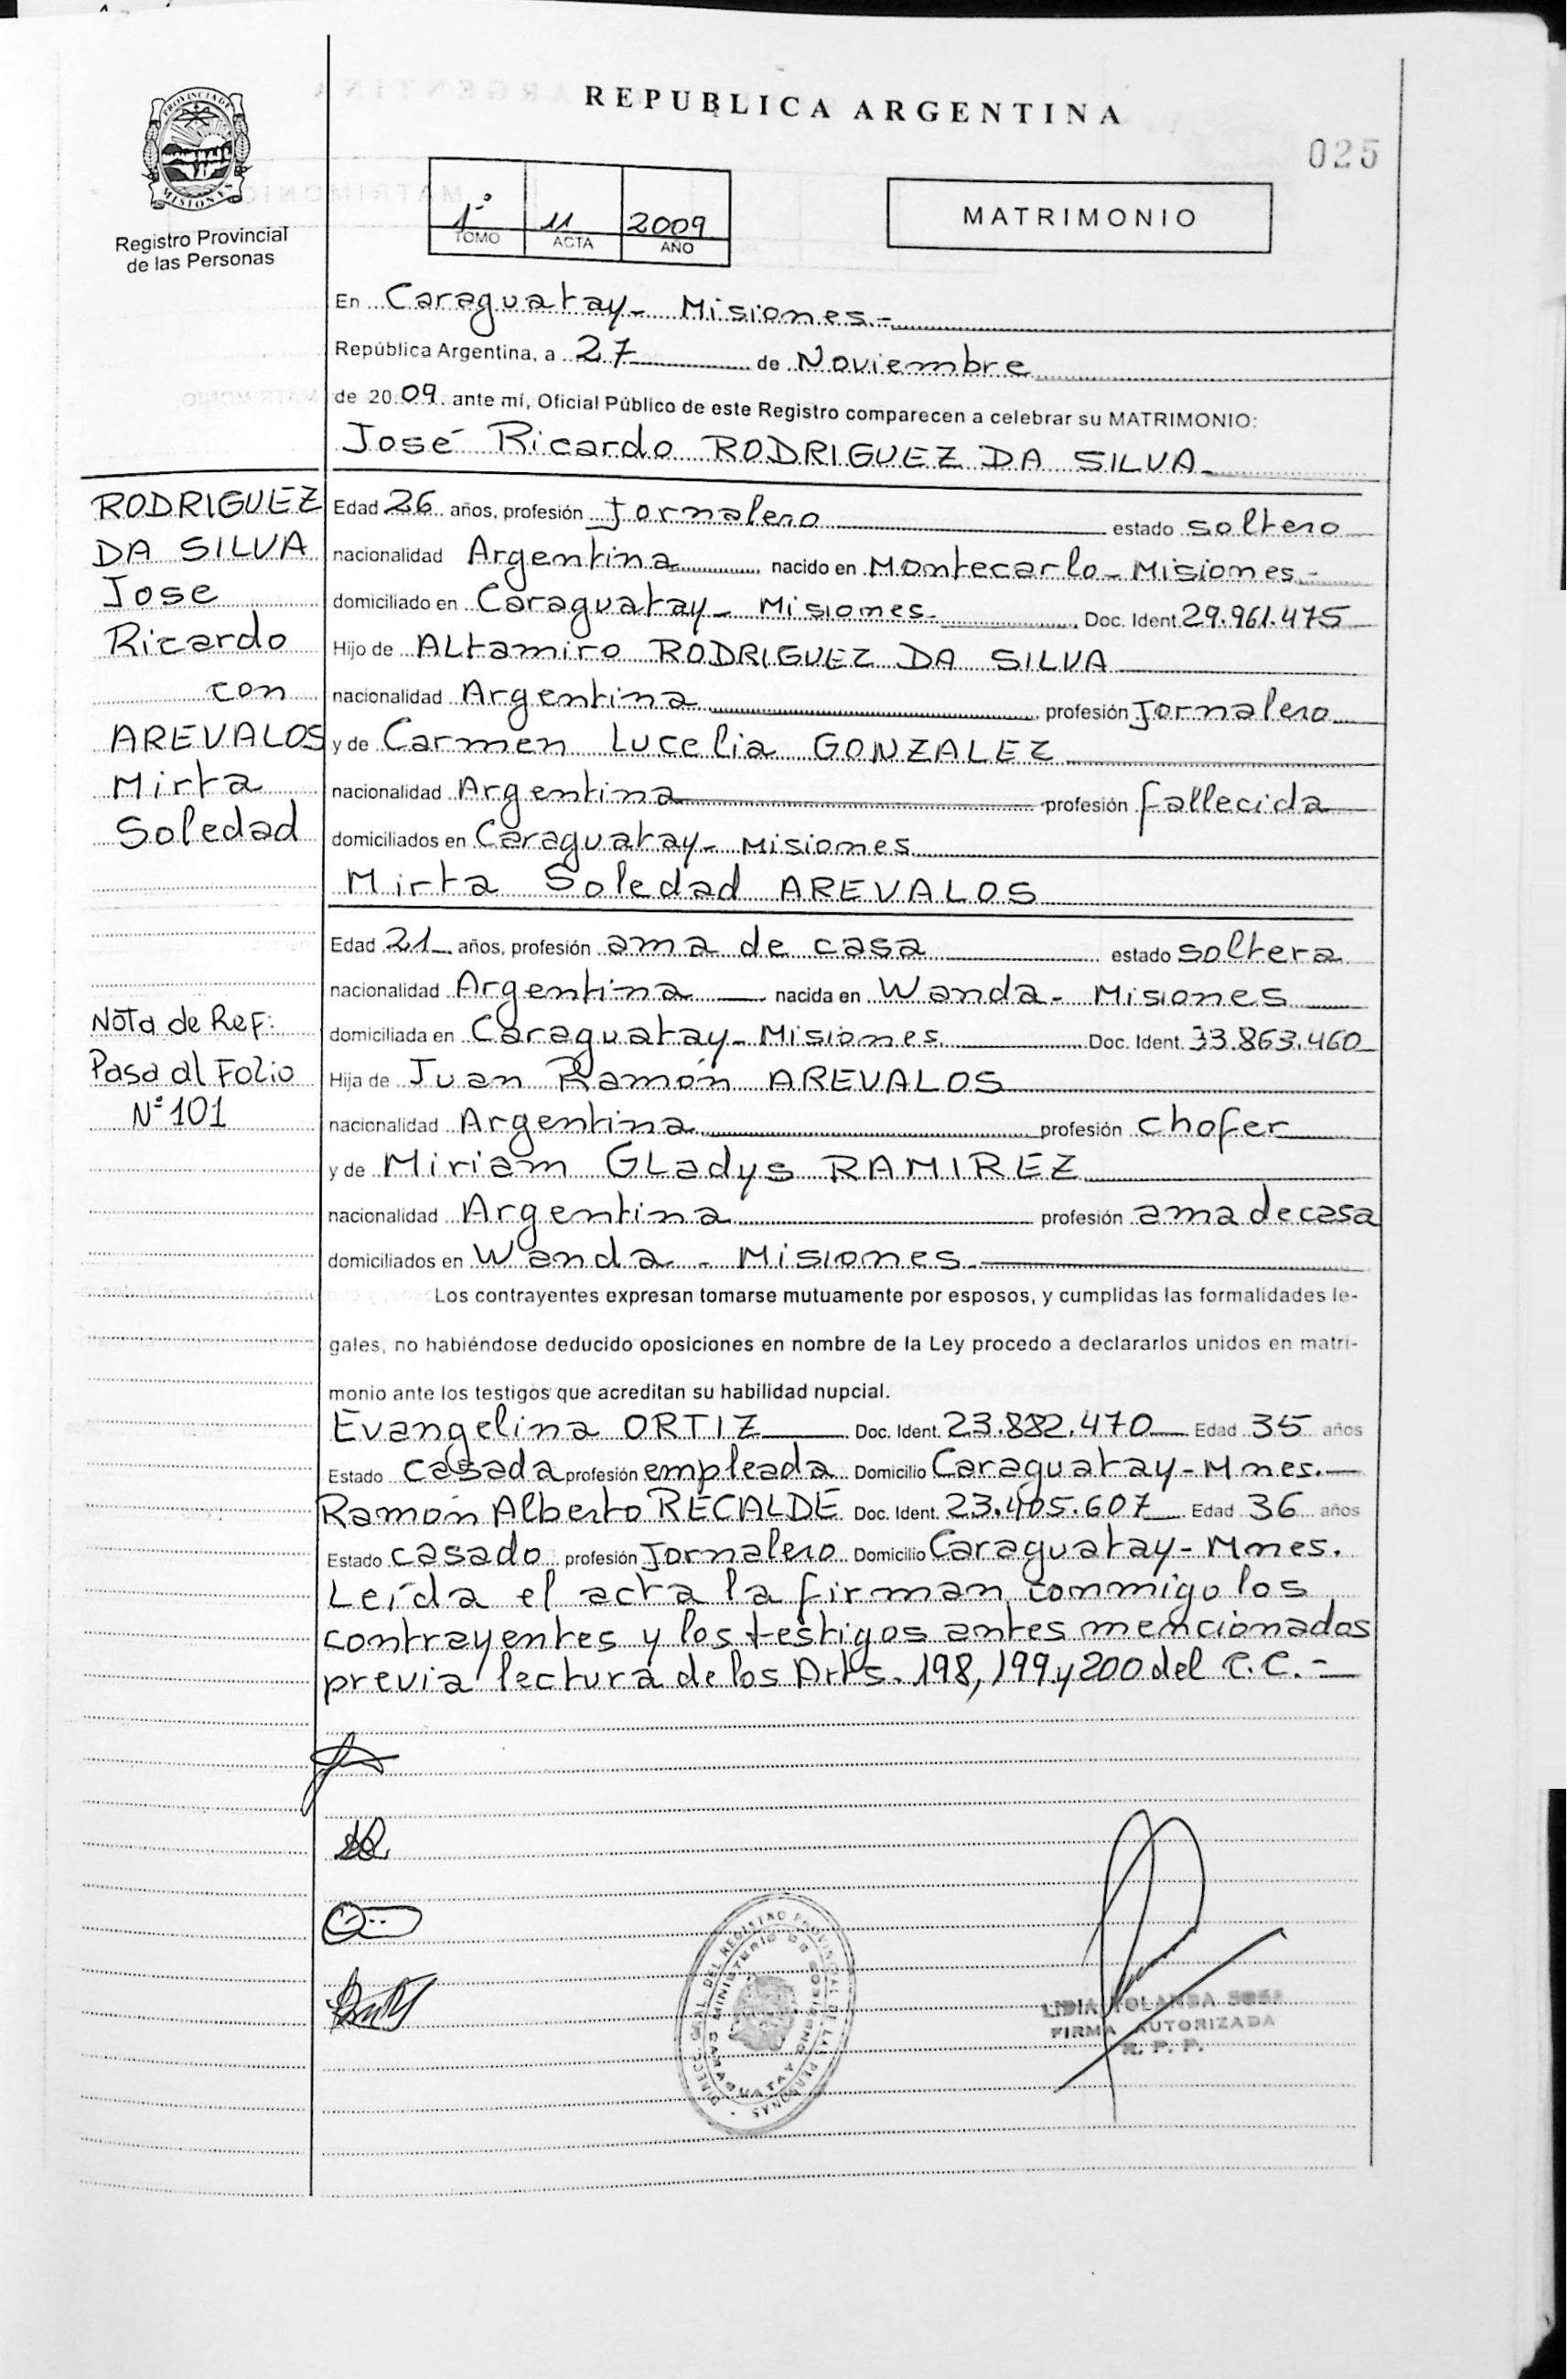 REPUBLICA ARGENTINA
025
PROVINCIA DE
MISIONES
Registro Provincial
de las Personas
1° 11 2009
TOMO ACTA AÑO
MATRIMONIO
En Caraguatay - Misiones.-
República Argentina, a 27 de Noviembre
de 2009 ante mí, Oficial Público de este Registro comparecen a celebrar su MATRIMONIO:
José Ricardo RODRIGUEZ DA SILVA
RODRIGUEZ
DA SILVA
Jose
Ricardo
con
AREVALOS
Mirta
Soledad
Nota de Ref:
Pasa al Folio
N° 101
Edad 26 años, profesión Jornalero estado soltero
nacionalidad Argentina nacido en Montecarlo - Misiones -
domiciliado en Caraguatay - Misiones. Doc. Ident. 29.961.475
Hijo de Altamiro RODRIGUEZ DA SILVA
nacionalidad Argentina profesión Jornalero
y de Carmen Lucelia GONZALEZ
nacionalidad Argentina profesión fallecida
domiciliados en Caraguatay - Misiones
Mirta Soledad AREVALOS
Edad 21 años, profesión ama de casa estado soltera
nacionalidad Argentina nacida en Wanda - Misiones
domiciliada en Caraguatay - Misiones Doc. Ident. 33.863.460
Hija de Juan Ramón AREVALOS
nacionalidad Argentina profesión chofer
y de Miriam Gladys RAMIREZ
nacionalidad Argentina profesión ama de casa
domiciliados en Wanda - Misiones.
Los contrayentes expresan tomarse mutuamente por esposos, y cumplidas las formalidades le-
gales, no habiéndose deducido oposiciones en nombre de la Ley procedo a declararlos unidos en matri-
monio ante los testigos que acreditan su habilidad nupcial.
Evangelina ORTIZ Doc. Ident. 23.882.470 Edad 35 años
Estado casada profesión empleada Domicilio Caraguatay - Mnes.
Ramón Alberto RECALDE Doc. Ident. 23.405.607 Edad 36 años
Estado casado profesión Jornalero Domicilio Caraguatay - Mnes.
Leída el acta la firman conmigo los
contrayentes y los testigos antes mencionados
previa lectura de los Arts. 198, 199 y 200 del C.C.-
DEL REGISTRO PROVINCIAL DE LAS PERSONAS
MINISTERIO DE GOBIERNO
CARAGUATAY
LIDIA YOLANDA SOSA
FIRMA AUTORIZADA
R. P. P.